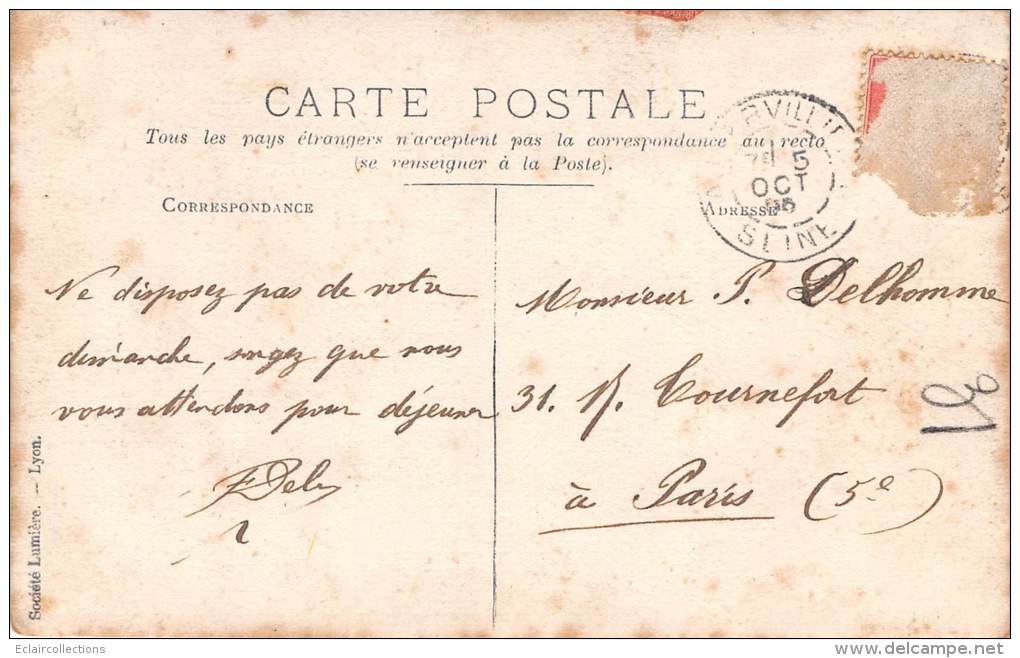 CARTE POSTALE
Tous les pays étrangers n'acceptent pas la correspondance au recto
(se renseigner à la Poste).
CORRESPONDANCE
ADRESSE
RVILL
5
OCT
SEINE
Ne disposez pas de votre
dimanche, songez que nous
vous attendons pour déjeuner
Monsieur P. Delhomme
31. r. Tournefort
à Paris (5e)
Société Lumière. — Lyon.
Eclaircollections
delcampe.net